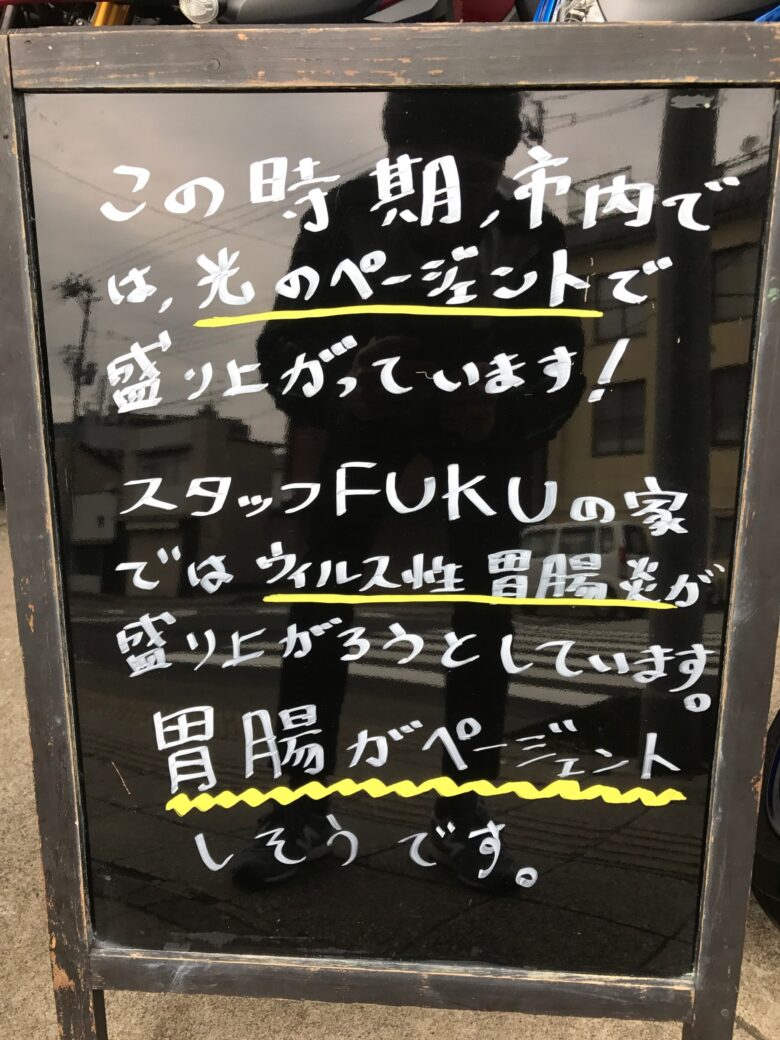 この時期,市内で
は,光のページェントで
盛り上がっています!
スタッフFUKUの家
ではウィルス性胃腸炎が
盛り上がろうとしています。
胃腸がページェント
しそうです。